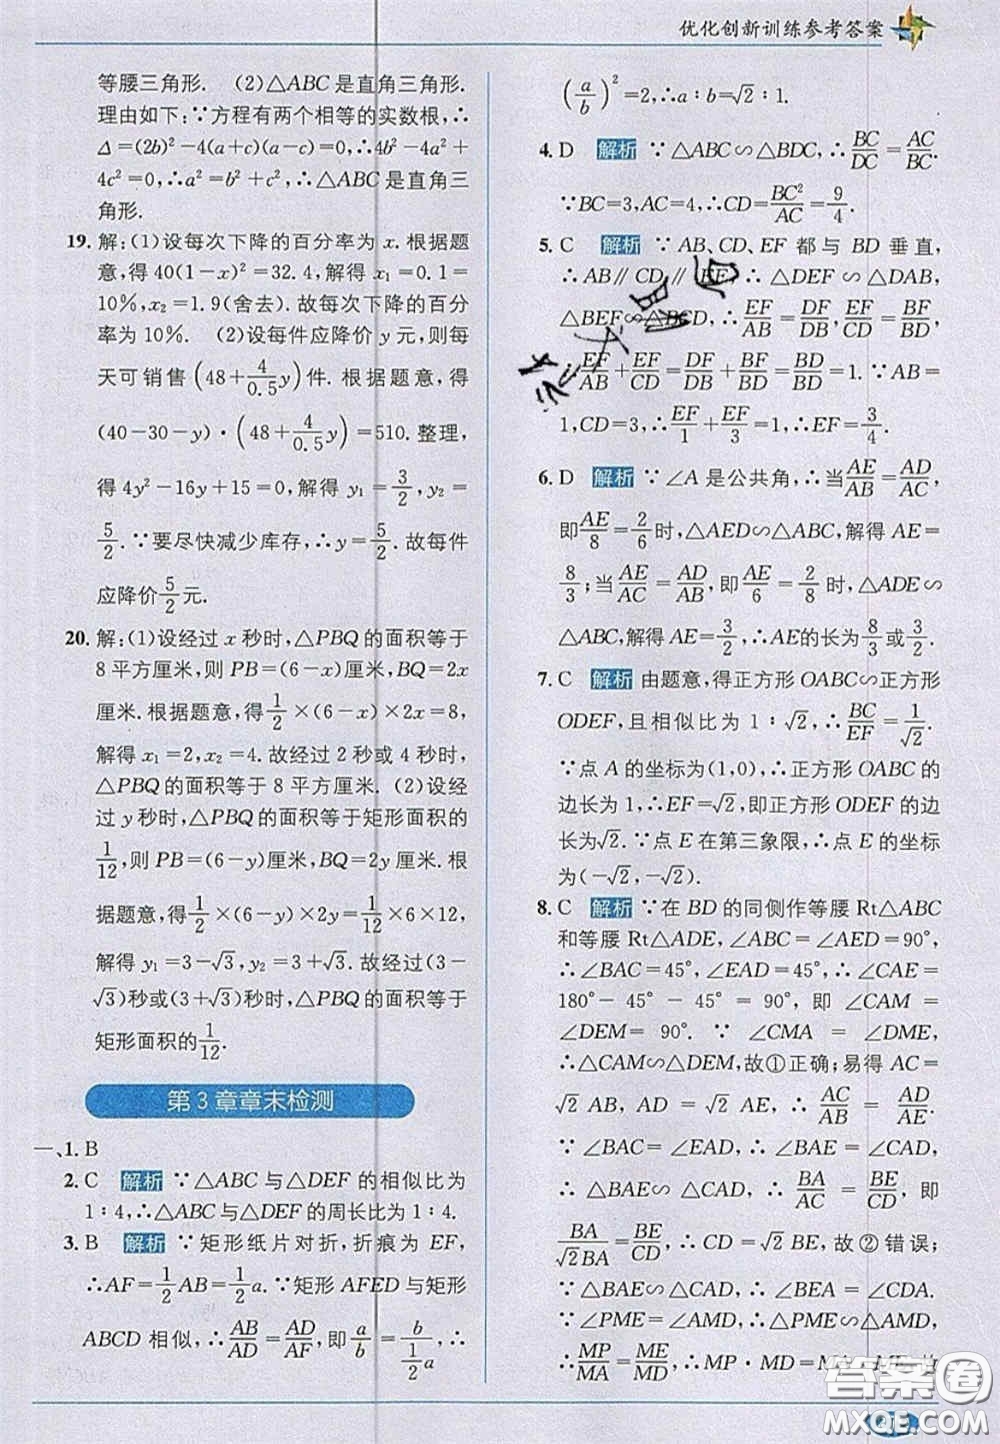 优化创新训练参考答案
等腰三角形. (2)△ABC是直角三角形.
理由如下:∵方程有两个相等的实数根,∴
Δ=(2b)²-4(a+c)(a-c)=0,∴4b²-4a²+
4c²=0,∴a²=b²+c²,∴△ABC是直角三
角形.
19. 解:(1)设每次下降的百分率为 x. 根据题
意,得40(1-x)²=32.4,解得x₁=0.1=
10%,x₂=1.9(舍去). 故每次下降的百分
率为10%. (2)设每件应降价 y 元,则每
天可销售(48+4/0.5y)件. 根据题意,得
(40-30-y)·(48+4/0.5y)=510. 整理,
得4y²-16y+15=0,解得y₁=3/2,y₂=
5/2. ∵要尽快减少库存,∴y=5/2. 故每件
应降价5/2元.
20. 解:(1)设经过 x 秒时,△PBQ的面积等于
8平方厘米,则PB=(6-x)厘米,BQ=2x
厘米. 根据题意,得1/2×(6-x)×2x=8,
解得x₁=2,x₂=4. 故经过2秒或4秒时,
△PBQ的面积等于8平方厘米. (2)设经
过y秒时,△PBQ的面积等于矩形面积的
1/12,则PB=(6-y)厘米,BQ=2y厘米. 根
据题意,得1/2×(6-y)×2y=1/12×6×12,
解得y₁=3-√3,y₂=3+√3. 故经过(3-
√3)秒或(3+√3)秒时,△PBQ的面积等于
矩形面积的1/12.
第3章章末检测
一、1. B
2. C 解析 ∵△ABC与△DEF的相似比为
1∶4,∴△ABC与△DEF的周长比为1∶4.
3. B 解析 ∵矩形纸片对折,折痕为EF,
∴AF=1/2AB=1/2a. ∵矩形AFED与矩形
ABCD相似,∴AB/AD=AD/AF,即a/b=b/(1/2a),∴
(a/b)²=2,∴a∶b=√2∶1.
4. D 解析 ∵△ABC∽△BDC,∴BC/DC=AC/BC.
∵BC=3,AC=4,∴CD=BC²/AC=9/4.
5. C 解析 ∵AB、CD、EF都与BD垂直,
∴AB∥CD∥EF,∴△DEF∽△DAB,
△BEF∽△BCD,∴EF/AB=DF/DB,EF/CD=BF/BD,
∴EF/AB+EF/CD=DF/DB+BF/BD=BD/BD=1. ∵AB=
1,CD=3,∴EF/1+EF/3=1,∴EF=3/4.
6. D 解析 ∵∠A是公共角,∴当AE/AB=AD/AC,
即AE/8=2/6时,△AED∽△ABC,解得AE=
8/3;当AE/AC=AD/AB,即AE/6=2/8时,△ADE∽
△ABC,解得AE=3/2,∴AE的长为8/3或3/2.
7. C 解析 由题意,得正方形OABC∽正方形
ODEF,且相似比为1∶√2,∴BC/EF=1/√2.
∵点A的坐标为(1,0),∴正方形OABC的
边长为1,∴EF=√2,即正方形ODEF的边
长为√2. ∵点E在第三象限,∴点E的坐标
为(-√2,-√2).
8. C 解析 ∵在BD的同侧作等腰Rt△ABC
和等腰Rt△ADE,∠ABC=∠AED=90°,
∴∠BAC=45°,∠EAD=45°,∴∠CAE=
180°-45°-45°=90°,即∠CAM=
∠DEM=90°. ∵∠CMA=∠DME,
∴△CAM∽△DEM,故①正确;易得AC=
√2AB,AD=√2AE,∴AC/AB=AD/AE.
∵∠BAC=∠EAD,∴∠BAE=∠CAD,
∴△BAE∽△CAD,∴BA/AC=BE/CD,即
BA/√2BA=BE/CD,∴CD=√2BE,故②错误;
∵△BAE∽△CAD,∴∠BEA=∠CDA.
∵∠PME=∠AMD,∴△PME∽△AMD,
∴MP/MA=ME/MD,∴MP·MD=MA·ME,故
答案圈
MXQE.COM